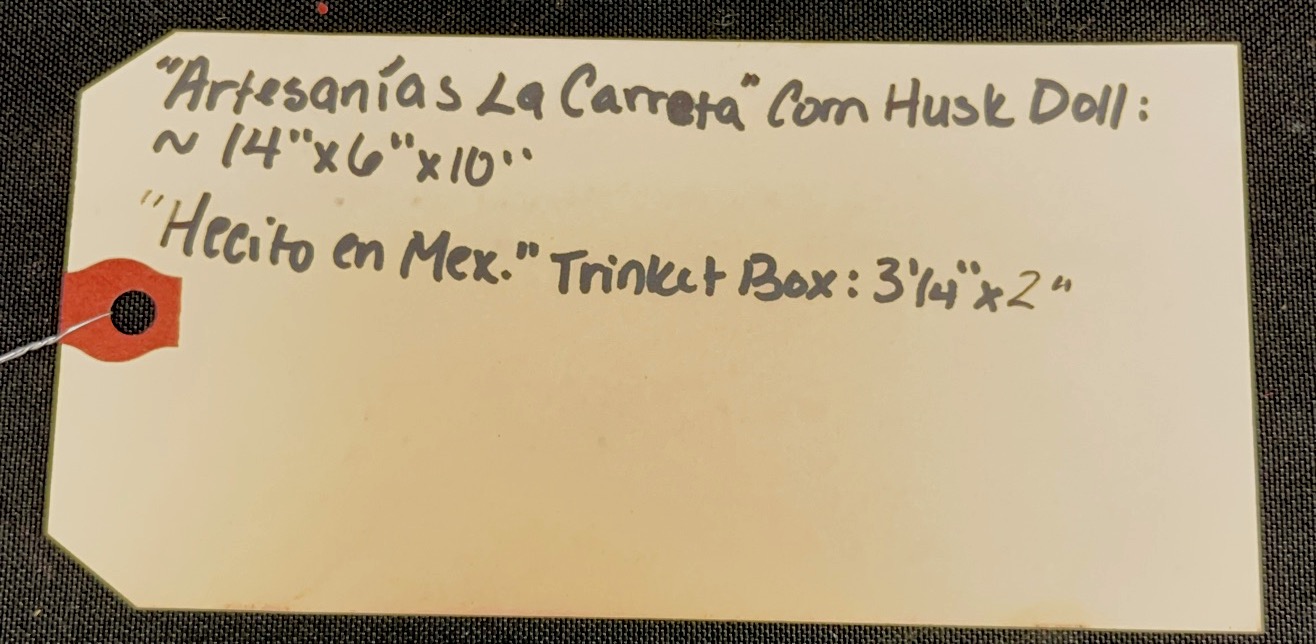 "Artesanías La Carreta" Corn Husk Doll:
~ 14"x6"x10"
"Hecito en Mex." Trinket Box: 3 1/4"x2"